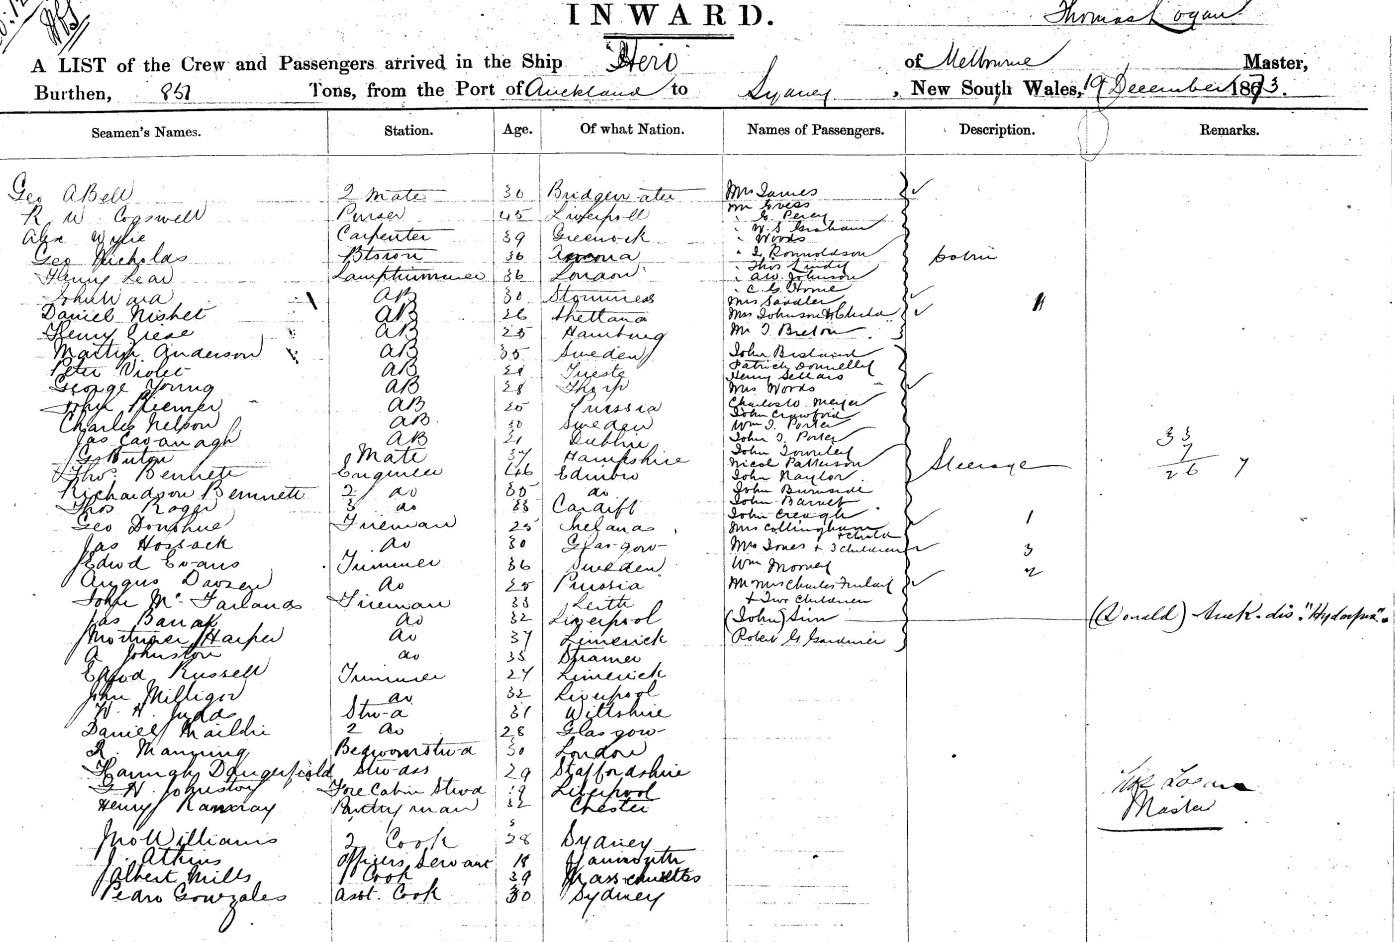 INWARD.
Thomas Logan
A LIST of the Crew and Passengers arrived in the Ship "Hero" of Melbourne Master,
Burthen, 851 Tons, from the Port of Auckland to Sydney, New South Wales, 19 December 1873.
Seamen's Names. Station. Age. Of what Nation. Names of Passengers. Description. Remarks.
Geo A Bell 2 Mate 30 Bridgewater Mrs James
R W Cogswell Purser 45 Liverpool Mr Gress
" G. Percy
Alex Wylie Carpenter 39 Greenock " W. S. Graham
" Woods
Geo Nicholas Btsron 36 Ancona " I. Ronnoldson Cabin
" Thos Lindy
Henry Lear Lamptrimmer 36 London " A W Johnson
" C. G. Horne
John Ward AB 30 Stomness Mrs Sandler
Daniel Nisbet AB 26 Shetland Mrs Johnson & Child 1
Henry Griese AB 25 Hamburg Mr J Breton
Martin Anderson AB 35 Sweden John
Peter Violet AB 21 Trieste Patrick Donnelly
Henry Sellars
George Young AB 28 Mrs Woods
John Riemer AB 25 Prussia Charles W. Meyer
John Crawford
Charles Nelson AB 30 Sweden Wm J. Porter
Jas Cavanagh AB 21 Dublin John J. Porter 33
G Buton Mate 37 Hampshire John Townley 7
Thos Bennett Engineer 46 Edinbro Nicol Patterson Steerage 26 7
John Naylor
Richardson Bennett 2 do 35 do John Burnside
Thos Roger 3 do 38 Cardiff John Barnet
Geo Donohue Fireman 25 John Creagh 1
Mrs Collingham & child
Jas Hossack do 30 Glasgow Mrs Jones & 3 children 3
Edwd Evans Trimmer 36 Sweden Wm Morney 2
Angus do 25 Prussia Mr Mrs Charles Finlay
& Two Children
John McFarland Fireman 33 Leith
Jas Barrat do 32 Liverpool (John) Sim (Donald) Auck. dis. "Hydaspes".
Mortimer Harper do 37 Limerick Robert G Gardiner
A Johnston do 35
Edwd Russell Trimmer 27 Limerick
John Milligor do 32 Liverpool
W. H. Judds Stwd 31 Wiltshire
Daniel Maildie 2 do 28 Glasgow
R. Manning Bedroomstwd 30 London
Hannah Dangerfield Stwdss 29 Staffordshire
G H Johnston Fore Cabin Stwd 19 Liverpool Thos Logan
Henry Pantryman 32 Chester Master
Jno Williams 2 Cook 28 Sydney
J. Atkins Officers Servant 18 Yarmouth
Albert Mills Cook 39 Massachusettes
Pedro Gonzales asst. Cook 30 Sydney